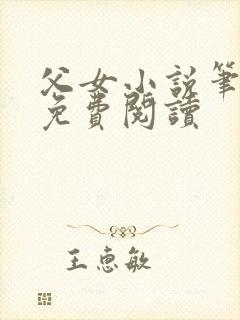 父女小说笔
免費閱讀
王惠敏